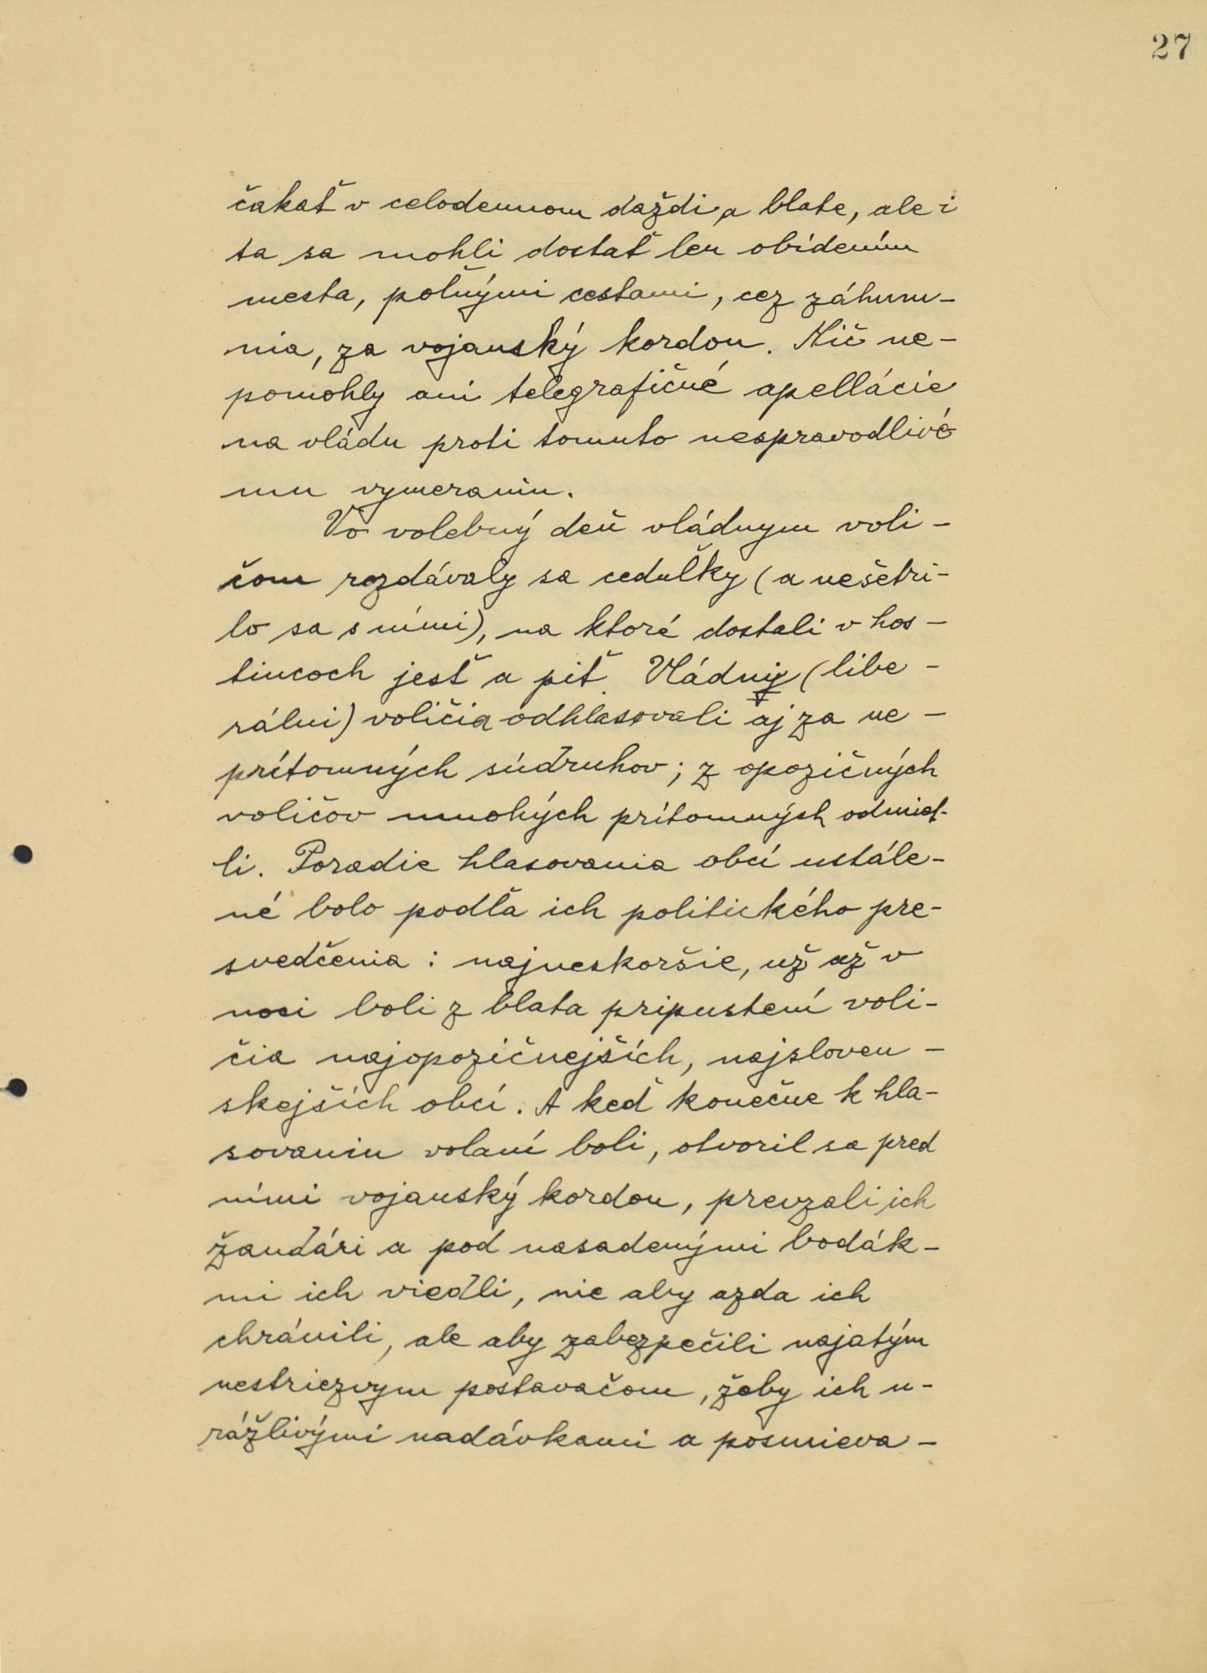 27
čakať v celodennom daždi a blate, ale i
ta sa mohli dostať len obídením
mesta, poľnými cestami, cez záhum-
nia, za vojanský kordon. Nič ne-
pomohly ani telegrafičné apellácie
na vládu proti tomuto nespravodlivé
mu vymeraniu.
Vo volebný deň vládnym voli-
čom rozdávaly sa ceduľky (a nešetri-
lo sa s nimi), na ktoré dostali v hos-
tincoch jesť a piť. Vládny (libe-
rálni) voličia odhlasovali aj za ne-
prítomných súdruhov; z opozičných
voličov mnohých prítomných odmiet-
li. Poradie hlasovania obcí ustále-
né bolo podľa ich politického pre-
svedčenia: najneskoršie, už až v
noci boli z blata pripustení voli-
čia najopozičnejších, najsloven-
skejších obcí. A keď konečne k hla-
sovaniu volaní boli, otvoril sa pred
nimi vojanský kordon, prevzali ich
žandári a pod nasadenými bodák-
mi ich viedli, nie aby azda ich
chránili, ale aby zabezpečili najatým
nestriezvym postavačom, žeby ich u-
rážlivými nadávkami a posmieva-